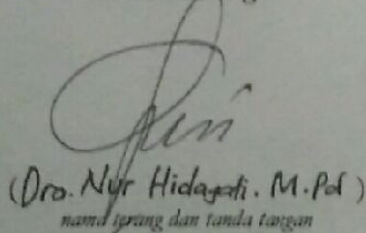 (Dra. Nur Hidayati. M.Pd)
nama terang dan tanda tangan